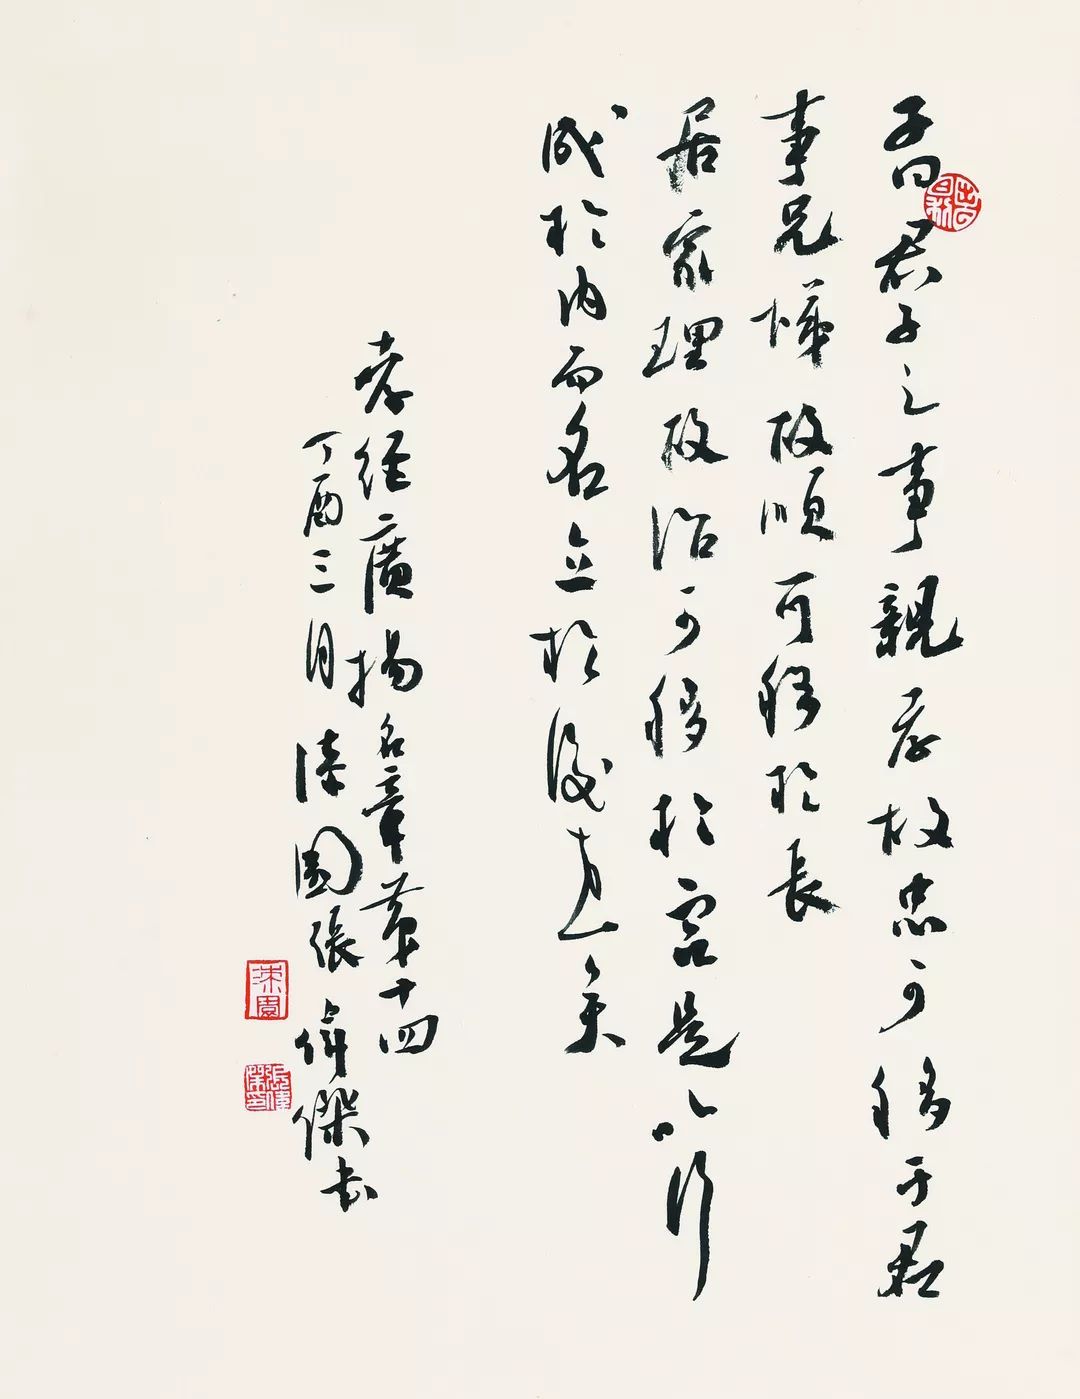 子曰君子之事親孝故忠可移于君
事兄悌故順可移於長
居家理故治可移於官是以行
成於內而名立於後世矣
孝經廣揚名章第十四
丁酉三月涑園張偉傑書
涑園